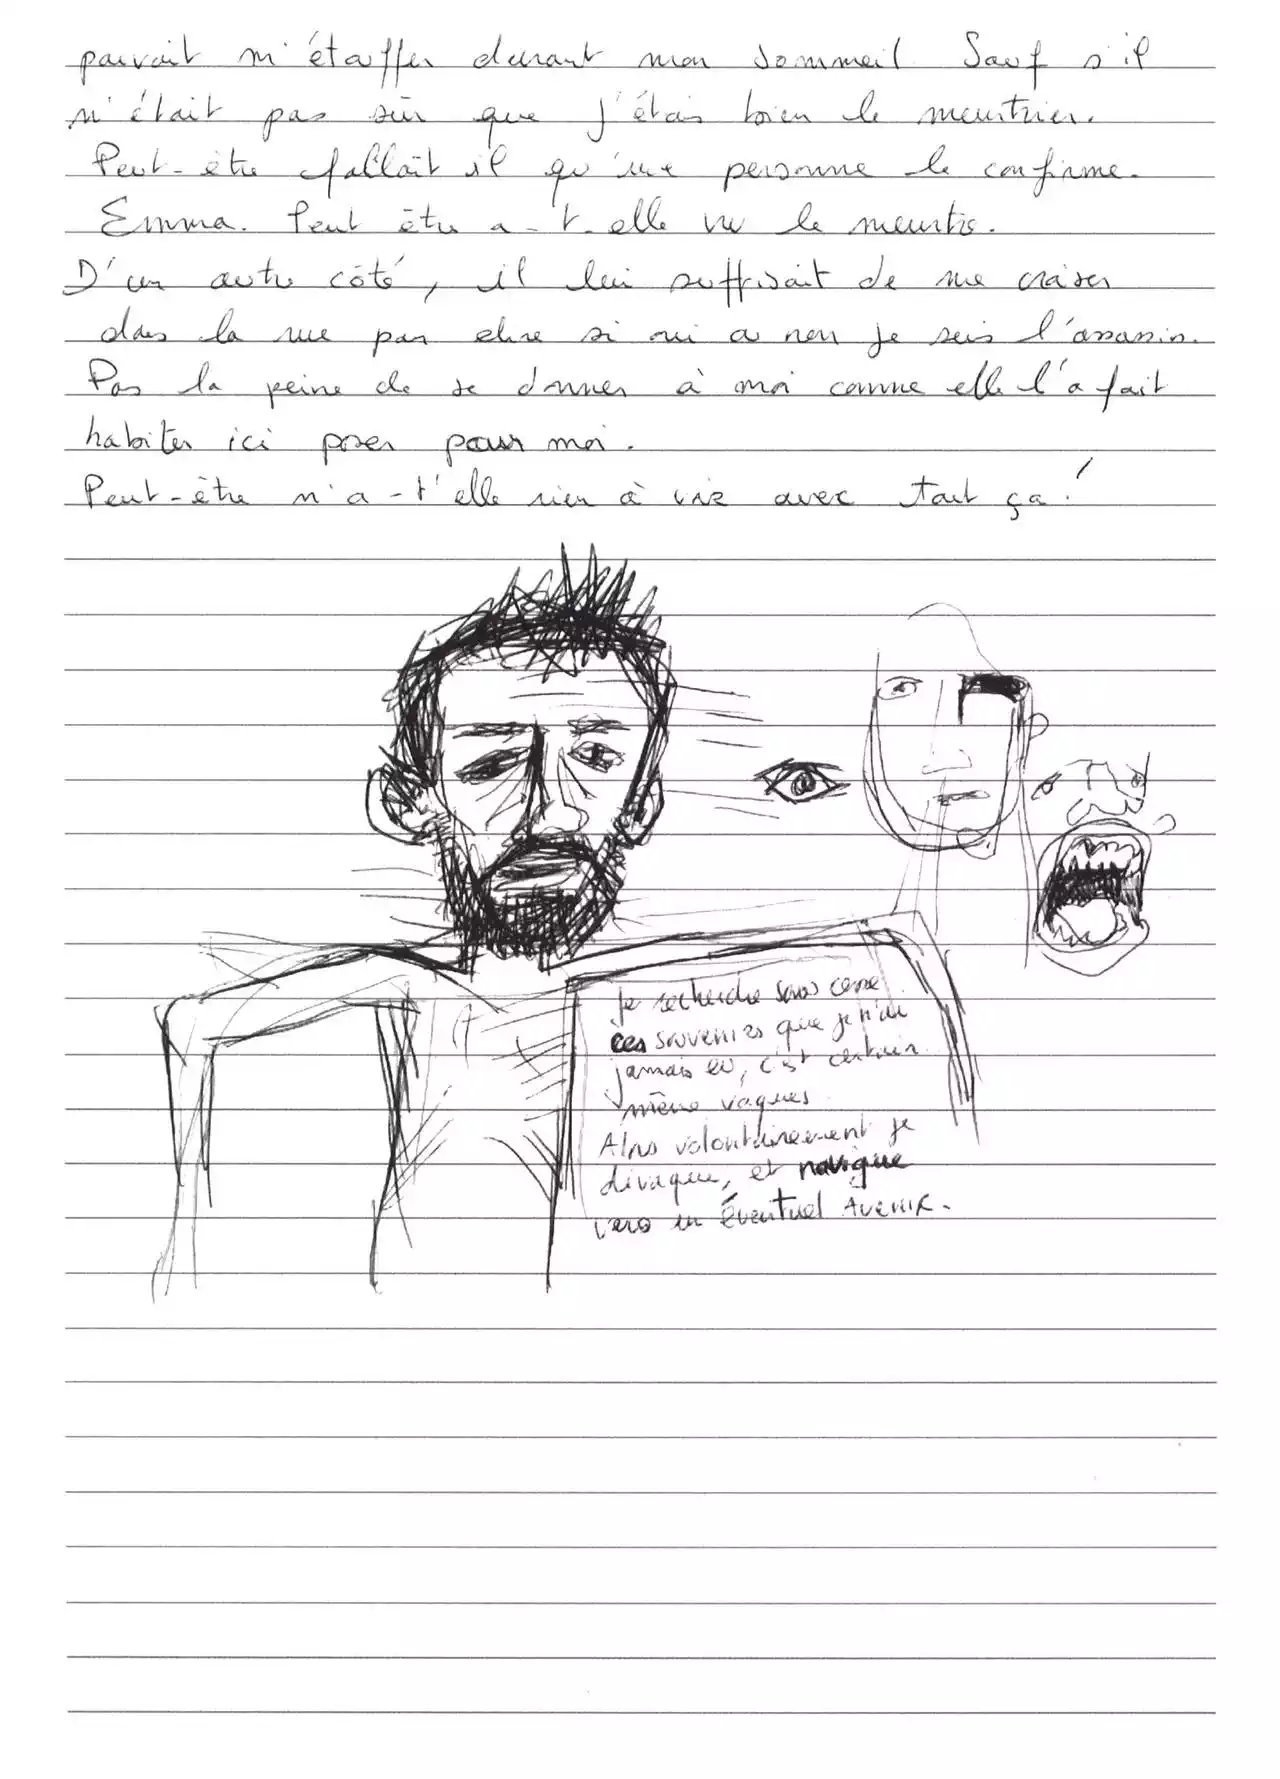 pouvait m'étouffer durant mon sommeil. Sauf s'il
n'était pas sûr que j'étais bien le meurtrier.
Peut-être fallait il qu'une personne le confirme.
Emma. Peut être a-t-elle vu le meurtre.
D'un autre côté, il lui suffisait de me croiser
dans la rue pour dire si oui ou non je suis l'assassin.
Pas la peine de se donner à moi comme elle l'a fait
habiter ici poser pour moi.
Peut-être n'a-t'elle rien à voir avec tout ça!
Je recherche sans cesse
ces souvenirs que je n'ai
jamais eu, c'est certain
même vagues
Alors volontairement je
divague, et navigue
vers un éventuel AVENIR.